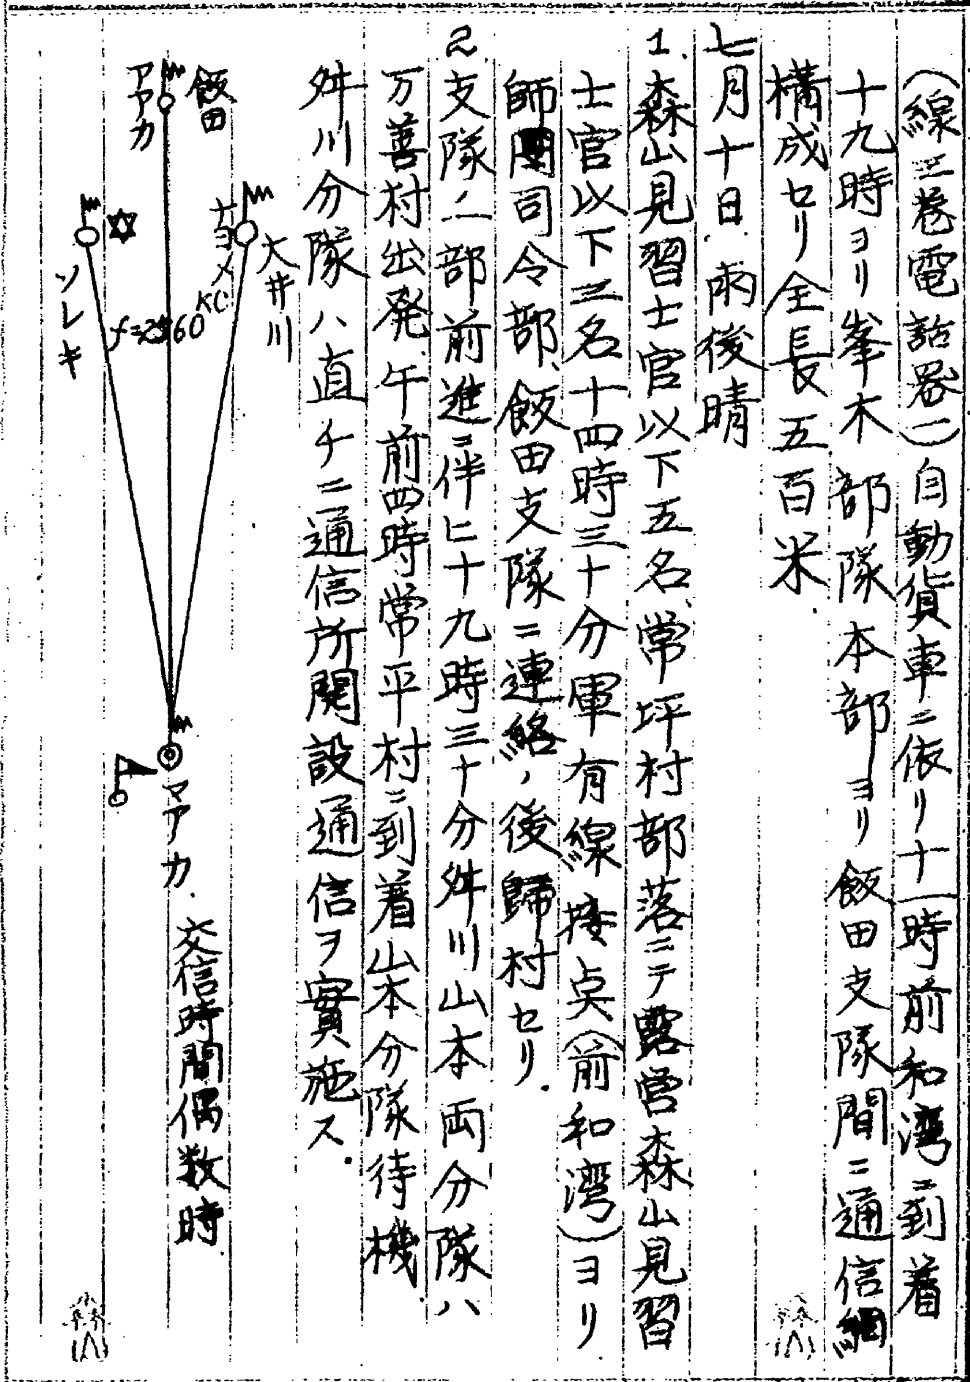 (線三巻電話器一)自動貨車ニ依リ十一時前和湾ニ到着
十九時ヨリ峯木部隊本部ヨリ飯田支隊間ニ通信網
構成セリ全長五百米.
七月十日 雨後晴
1. 森山見習士官以下五名常坪村部落ニテ露営森山見習
士官以下三名十四時三十分軍有線接点(前和湾)ヨリ
師團司令部、飯田支隊ニ連絡,後歸村セリ.
2 支隊ノ一部前進ニ伴ヒ十九時三十分舛川山本両分隊ハ
万善村出発、午前四時常平村ニ到着山本分隊待機.
舛川分隊ハ直チニ通信所開設通信ヲ實施ス.
大井川
ナヨメ
飯田
アアカ
ソレキ
f=2560 KC
マアカ.
交信時間偶数時